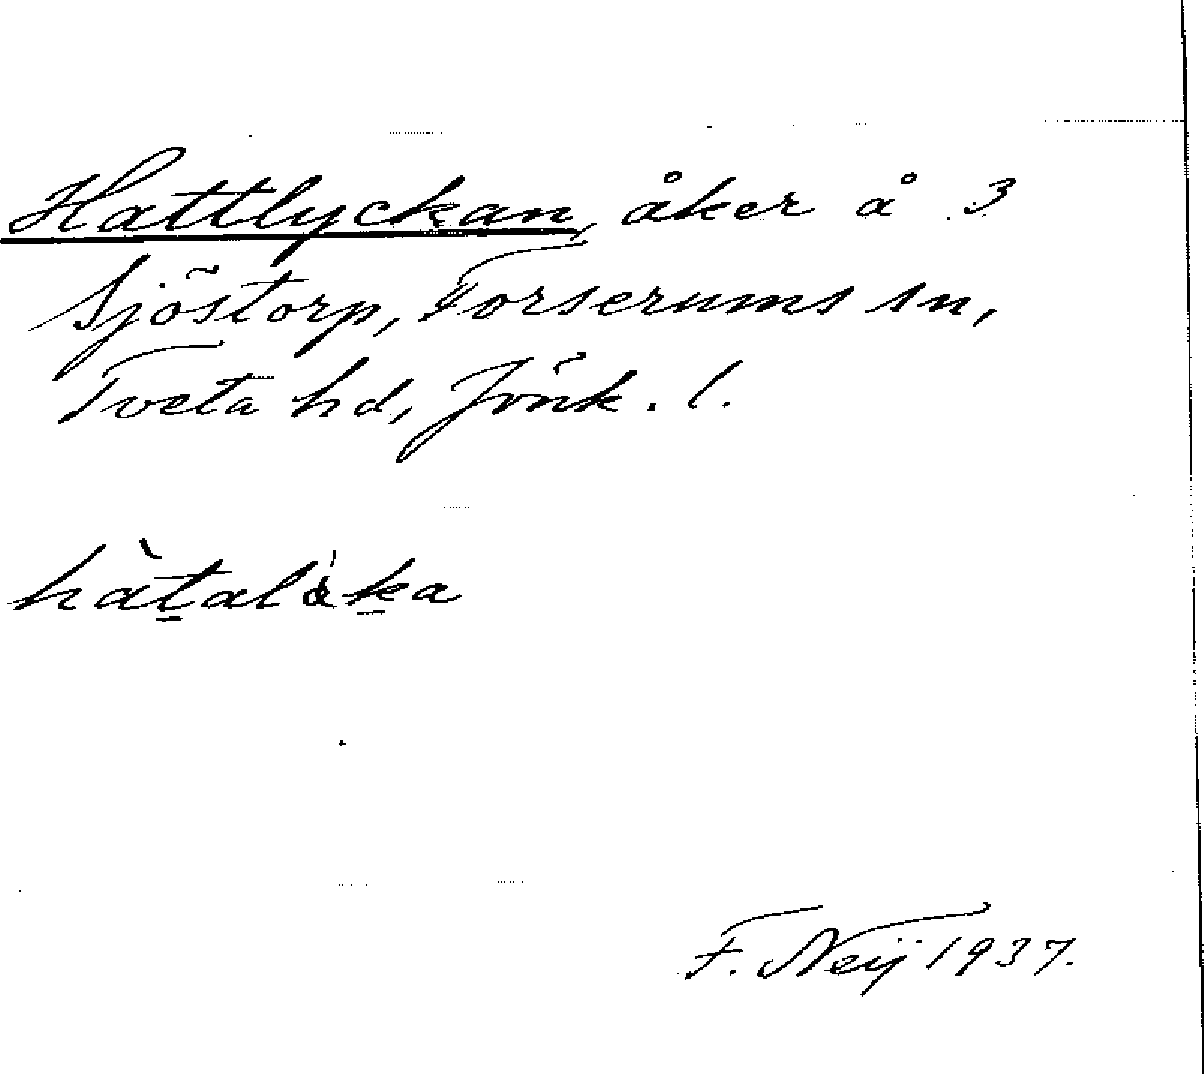 Hattlyckan, åker å 3
Sjöstorp, Forserums sn,
Tveta hd, Jönk. l.
hàt̲alàk̲a
F. Neij 1937.